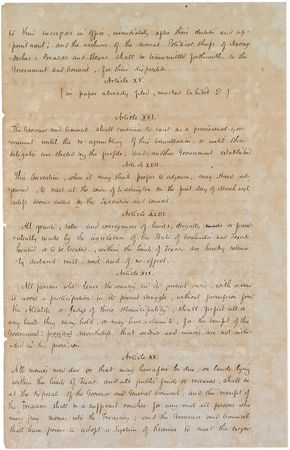 to their successors in office, immediately after their election and ap-
pointment; and the archives of the several Political Chiefs of Nacog-
doches, Brazos and Bexar shall be transmitted forthwith to the
Government and Council, for their disposition.
Article XV.
(in paper already filed, marked Exhibit D)
Article XVI.
The Governor and Council shall continue to exist as a provisional gov-
ernment until the re-assembling of this Consultation, or until other
delegates are elected by the people, and another Government established.
Article XVII.
This Convention, when it may think proper to adjourn, may stand ad-
journed, to meet at the town of Washington on the first day of March next
unless sooner called by the Executive and council.
Article XVIII.
All grants, sales and conveyances of lands, illegally and fraud-
ulently made by the legislature of the State of Coahuila and Texas
located or to be located, within the limit of Texas are hereby solem-
nly declared null, void and of no effect.
Article XIX.
All persons who leave the country in its present crisis, with a view
to avoid a participation in its present struggle, without permission from
the Alcalde or Judge of their Municipality, shall forfeit all or
any lands they may hold, or may have a claim to, for the benefit of this
Government; provided nevertheless that widows and minors are not inclu-
ded in this provision.
Article XX.
All monies now due or that may hereafter be due, on lands lying
within the limits of Texas, and all public funds or revenues, shall be
at the disposal of the Governor and General Council, and the receipt of
the Treasurer shall be a sufficient voucher for any and all persons who
may pay monies into the Treasury; and the Governor and Council
shall have power to adopt a System of Revenue to meet the exigen-